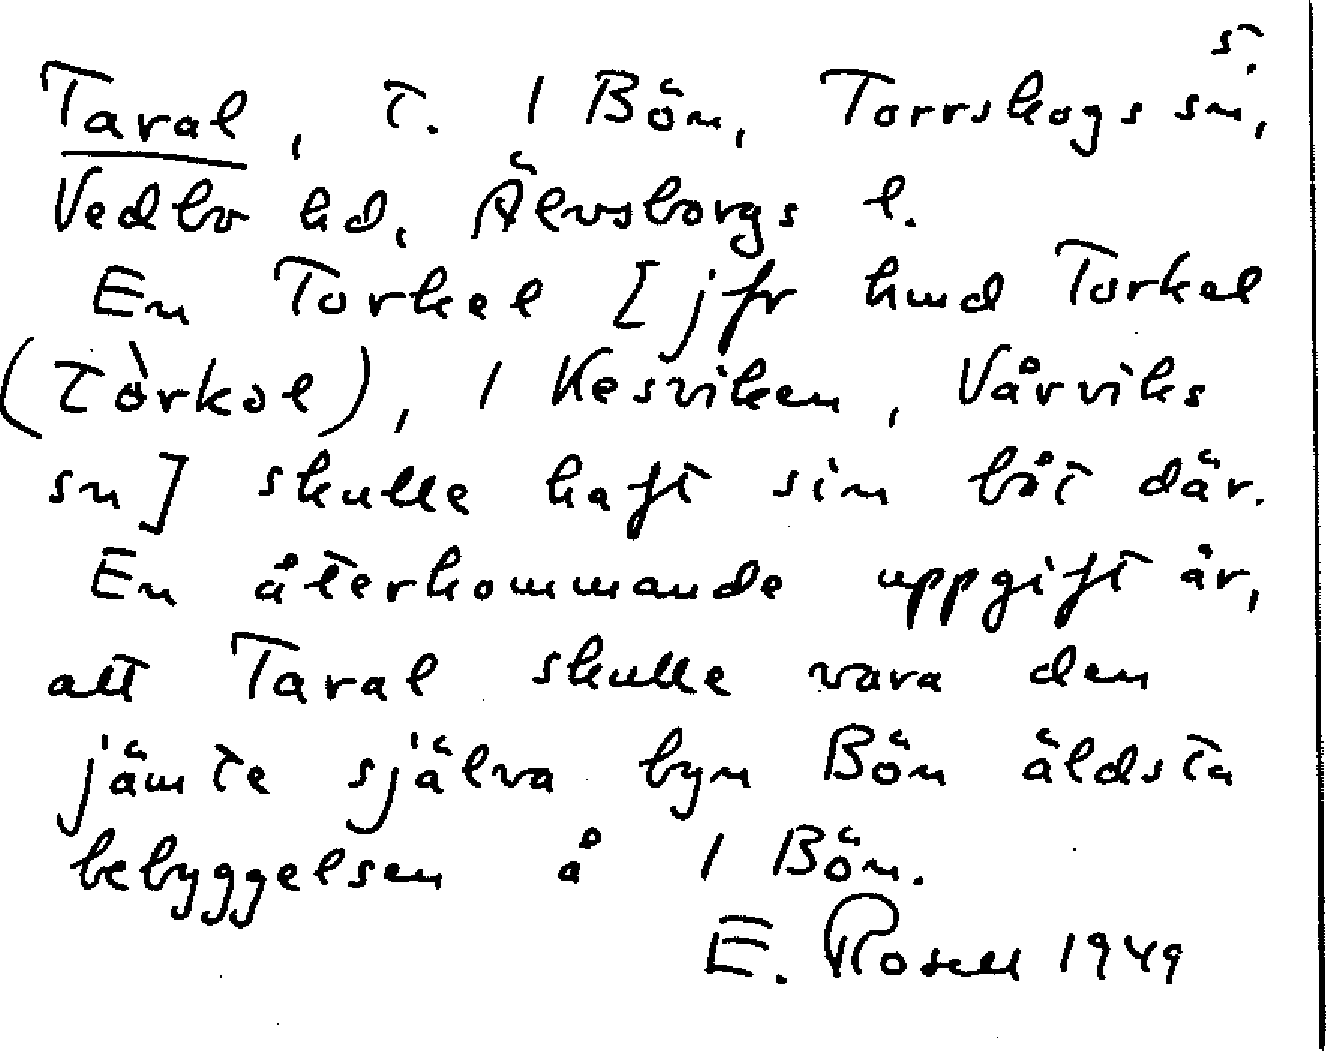 s.
Taral, t. 1 Bön, Torrskogs sn,
Vedbo hd, Älvsborgs l.
En Torkel [jfr hmd Torkel
(Tòrkəl), 1 Kesviken, Vårviks
sn] skulle haft sin båt där.
En återkommande uppgift är,
att Taral skulle vara den
jämte själva byn Bön äldsta
bebyggelsen å 1 Bön.
E. Rosell 1949